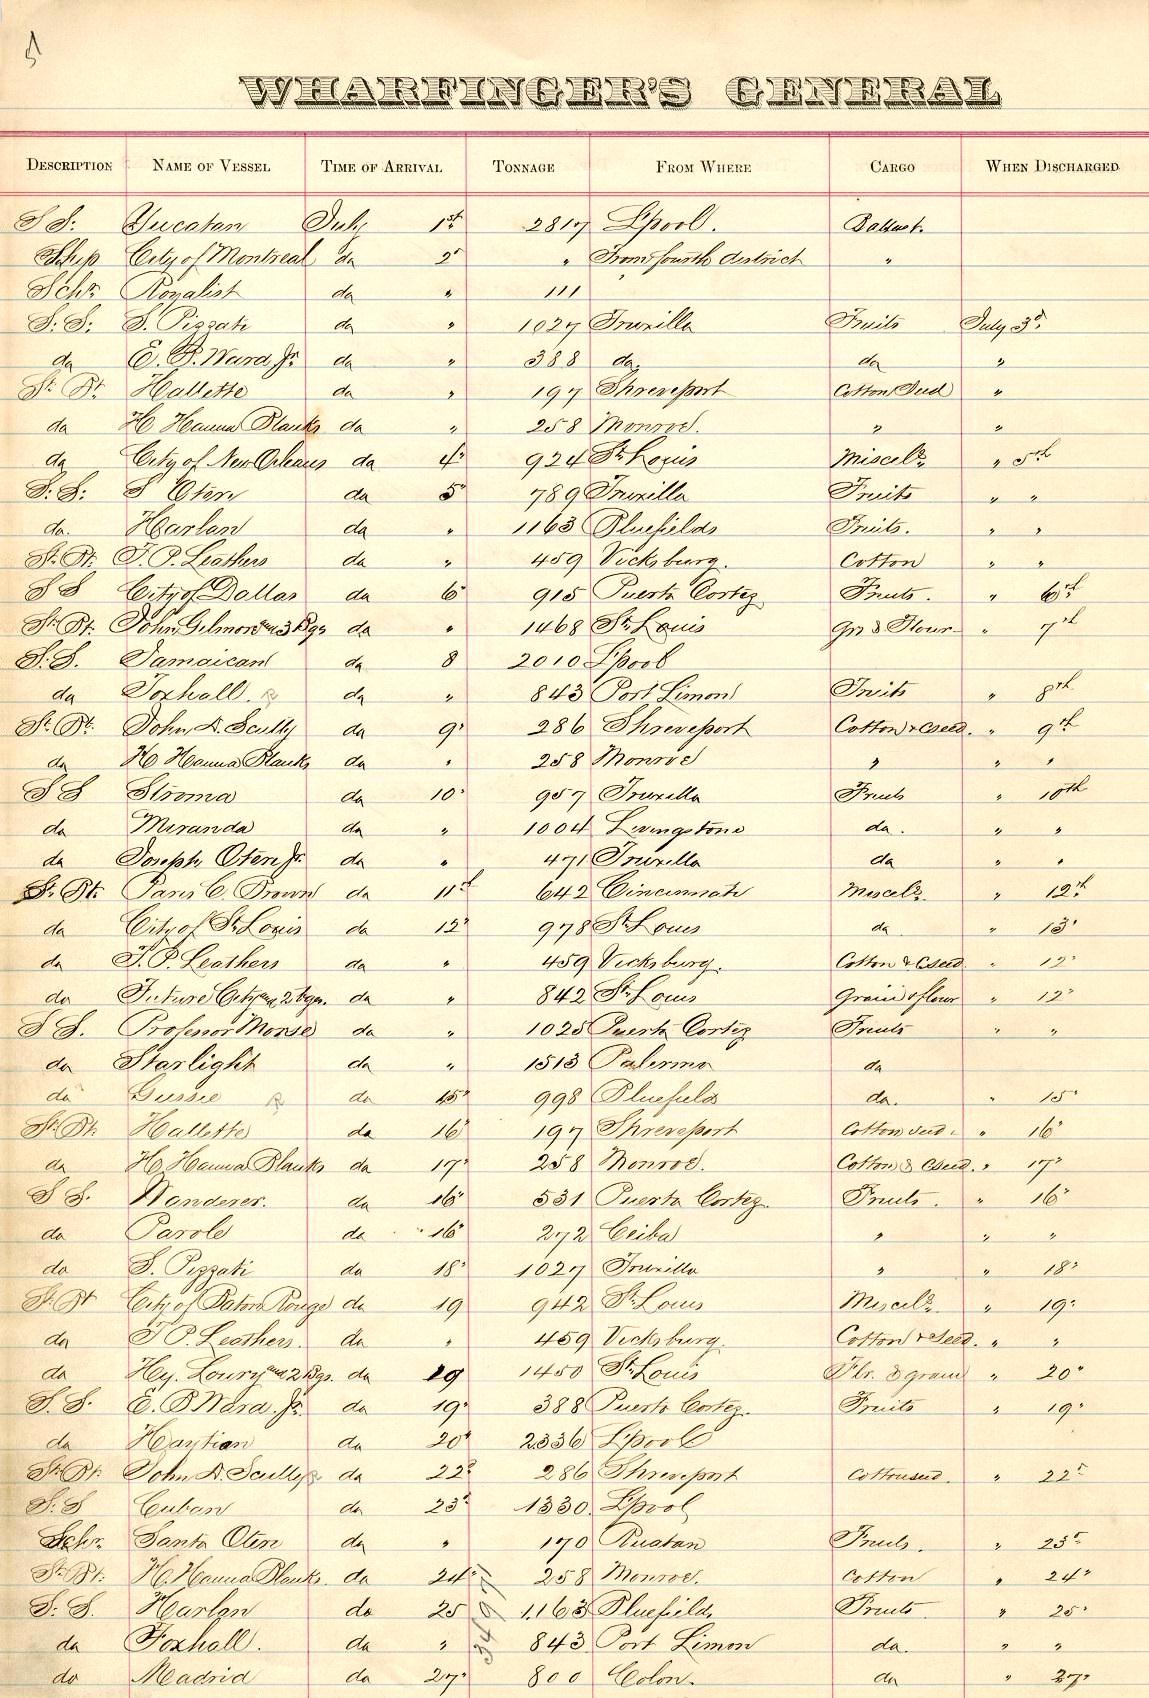 5
WHARFINGER'S GENERAL
DESCRIPTION NAME OF VESSEL TIME OF ARRIVAL TONNAGE FROM WHERE CARGO WHEN DISCHARGED
S S: Yucatan July 1st 2817 L'pool. Ballast.
Ship City of Montreal do 2" " From fourth district "
Schr Royalist do " 111
S: S: S. Pizzati do " 1027 Truxillo Fruits July 3d
do E. B. Ward Jr. do " 388 do. do "
St. Bt. Hallette do " 197 Shreveport Cotton Seed "
do H Hanna Blanks do " 258 Monroe. " "
do City of New Orleans do 4" 924 St. Louis Miscels. " 5th
S: S: S Oteri do 5" 789 Truxillo Fruits " "
do. Harlan do " 1163 Bluefields Fruits. " "
St. Bt. T. P. Leathers do " 459 Vicksburg. Cotton " "
S S City of Dallas do 6" 915 Puerto Cortez Fruits. " 6th
St. Bt. John Gilmore and 3 Bgs do " 1468 St. Louis Gn & Flour " 7th
S. S. Jamaican do 8 2010 L'pool
do Foxhall. do " 843 Port Limon Fruits " 8th
St. Bt. John D. Scully do 9" 286 Shreveport Cotton & C seed. " 9th
do H Hanna Blanks do " 258 Monroe " " "
S S Stroma do 10" 957 Truxillo Fruits " 10th
do Miranda do " 1004 Livingstone do. " "
do Joseph Oteri Jr. do " 471 Truxillo do " "
St. Bt. Paris C. Brown do 11th 642 Cincinnati Miscels. " 12th
do City of St. Louis do 12" 978 St. Louis do " 13"
do T. P. Leathers do " 459 Vicksburg. Cotton & C seed " 12"
do Future City and 2 bgs. do " 842 St. Louis Grain & flour " 12"
S S. Professor Morse do " 1025 Puerto Cortez Fruits " "
do Starlight do " 1513 Palermo do
do Gussie do 15" 998 Bluefields do. " 15"
St. Bt. Hallette do 16" 197 Shreveport Cotton seed. " 16"
do H Hanna Blanks do 17" 258 Monroe. Cotton & C seed. " 17"
S S. Wanderer. do 16" 531 Puerto Cortez. Fruits. " 16"
do Parole do " 16" 272 Ceiba " " "
do S. Pizzati do 18" 1027 Truxillo " " 18"
St. Bt City of Baton Rouge do 19 942 St. Louis Miscels. " 19"
do T P. Leathers. do " 459 Vicksburg. Cotton & Seed. " "
do Hy. Lourey and 2 Bgs. do 19 1450 St. Louis Flr. & grain " 20"
S. S. E. B Ward. Jr. do 19" 388 Puerto Cortez. Fruits " 19"
do Haytian do 20" 2336 L'pool
St. Bt. John D. Scully do 22d 286 Shreveport Cottonseed. " 22d
S. S Cuban do 23d 1330. L'pool
Schr. Santo Oteri do " 170 Ruatan Fruits. " 23d
St. Bt. H. Hanna Blanks. do 24" 258 Monroe. Cotton " 24"
S. S. Harlan do 25 1,163 Bluefields Fruits " 25"
do Foxhall. do " 843 Port Limon do. " "
do Madrid do 27" 800 Colon. do " 27"